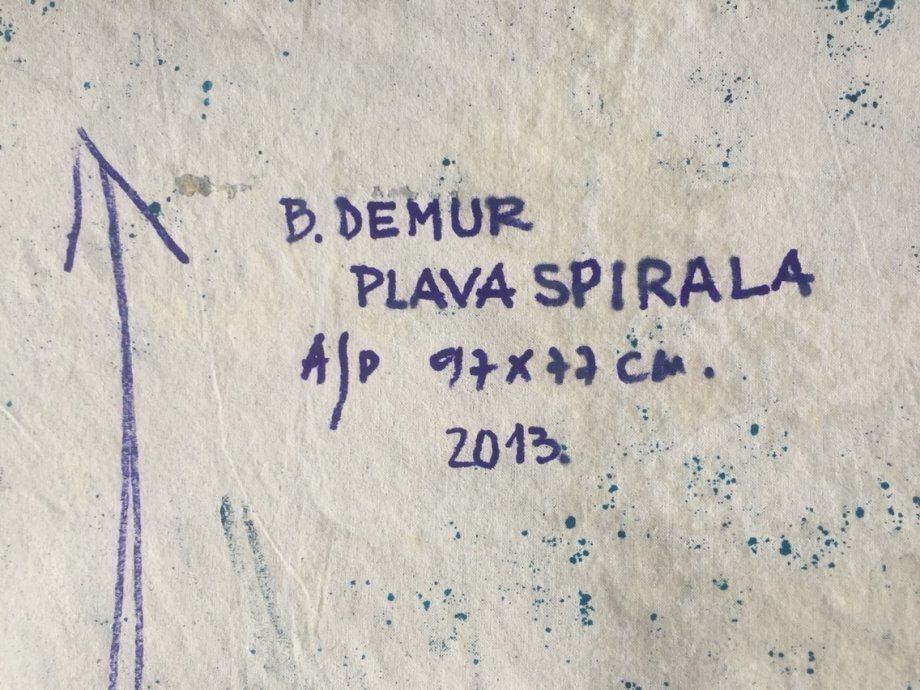 B. DEMUR
PLAVA SPIRALA
A/P 97x77 cm.
2013.